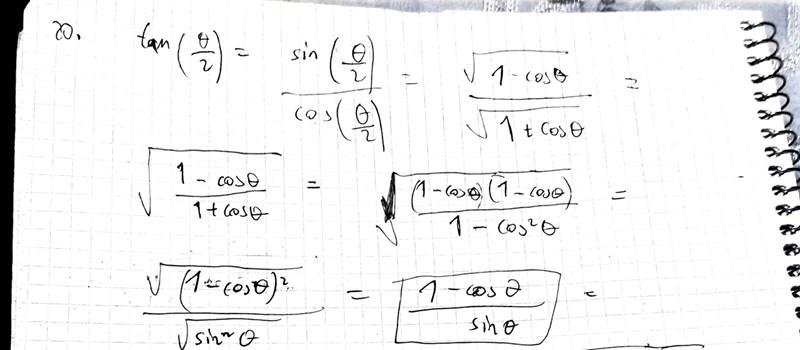 20. tan(θ/2) = sin(θ/2)/cos(θ/2) = √(1-cosθ)/√(1+cosθ) =
√((1-cosθ)/(1+cosθ)) = √((1-cosθ)(1-cosθ)/(1-cos²θ)) =
√((1-cosθ)²)/√(sin²θ) = (1-cosθ)/sinθ =